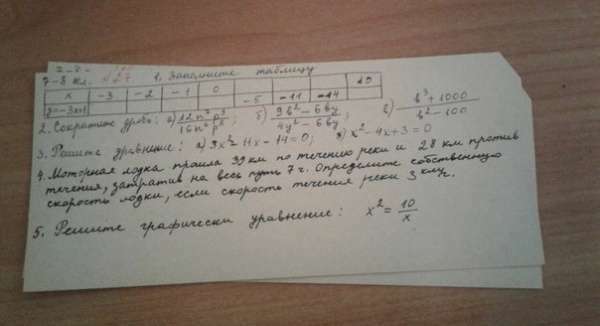 7-8 кл. 1. Заполните таблицу
x -3 -2 -1 0 19
y=-3x+1 -5 -11 -14
2. Сократите дробь: а) б) (9b²-6by)/(4y²-6by); в) (b³+1000)/(b²-100)
3. Решите уравнение: а) 3x²-11x-14=0; x²-4x+3=0
4. Моторная лодка прошла 39 км по течению реки и 28 км против
течения, затратив на весь путь 7 ч. Определите собственную
скорость лодки, если скорость течения реки 3 км/ч.
5. Решите графически уравнение: x²=10/x